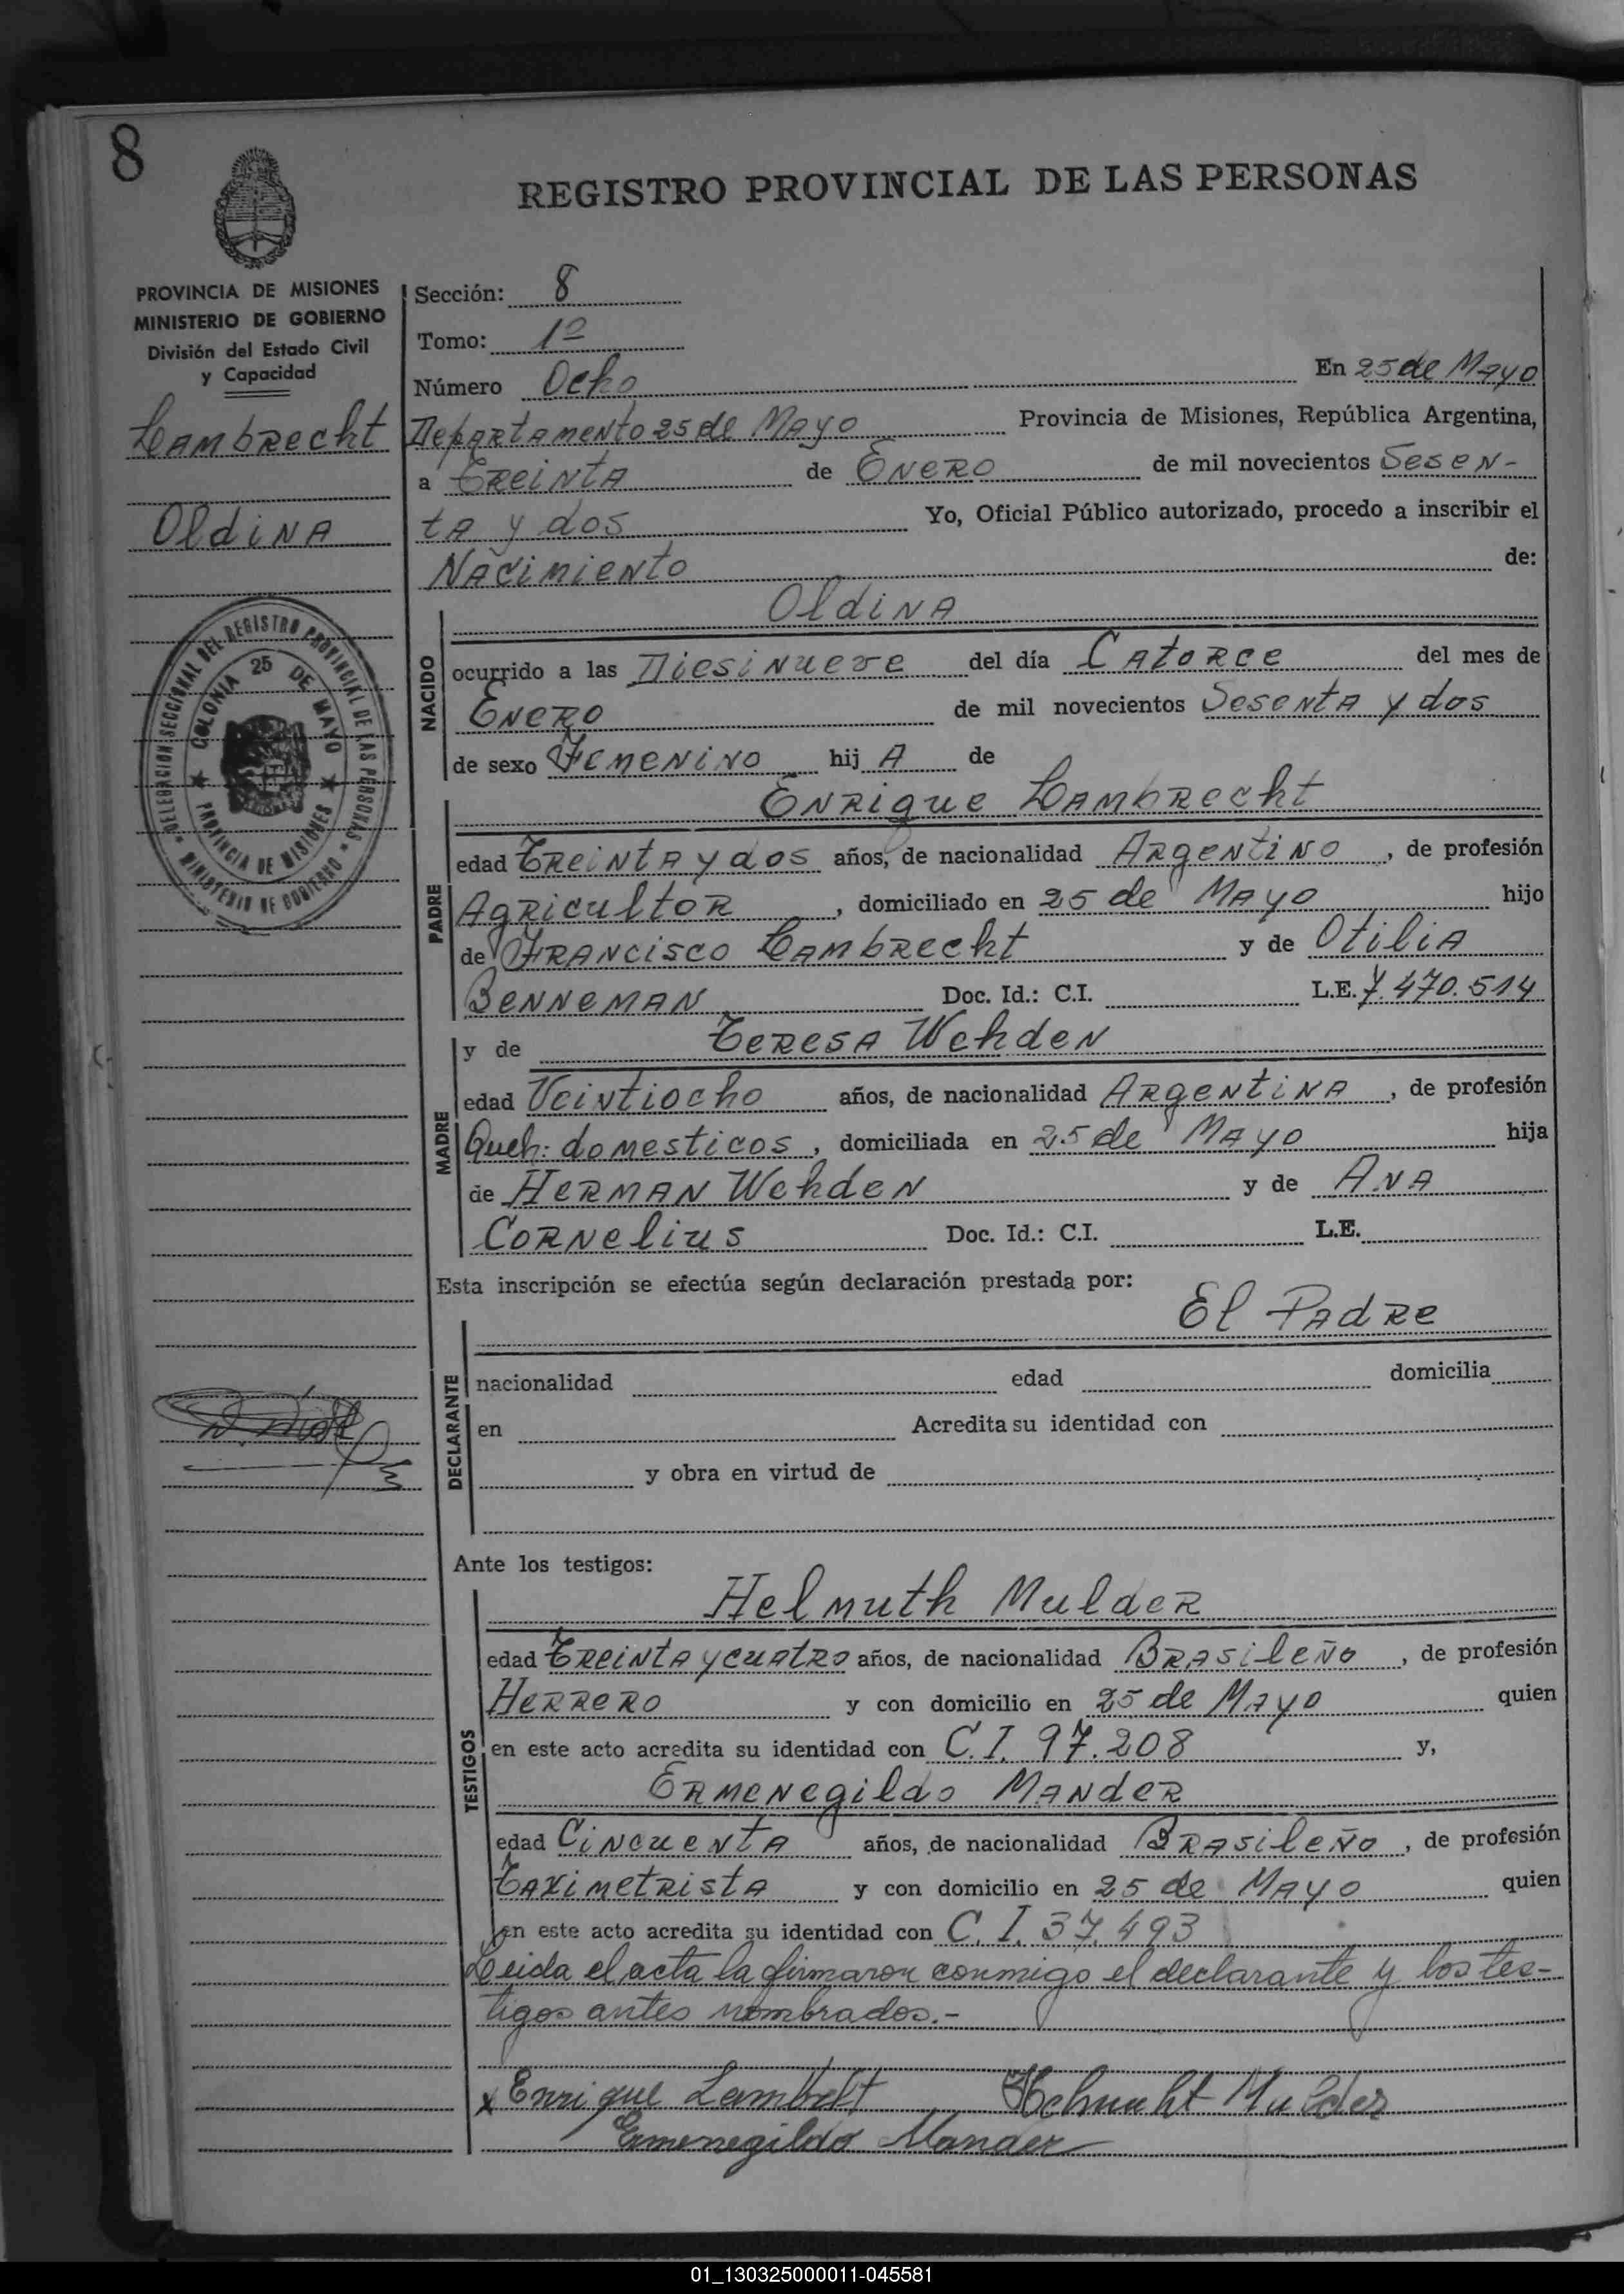 8
REGISTRO PROVINCIAL DE LAS PERSONAS
PROVINCIA DE MISIONES
MINISTERIO DE GOBIERNO
División del Estado Civil
y Capacidad
Lambrecht
Oldina
DELEGACION SECCIONAL DEL REGISTRO PROVINCIAL DE LAS PERSONAS
MINISTERIO DE GOBIERNO
COLONIA 25 DE MAYO
PROVINCIA DE MISIONES
Sección: 8
Tomo: 1º
Número Ocho En 25 de Mayo
Departamento 25 de Mayo Provincia de Misiones, República Argentina,
a Treinta de Enero de mil novecientos Sesen-
ta y dos Yo, Oficial Público autorizado, procedo a inscribir el
Nacimiento de:
NACIDO
Oldina
ocurrido a las Diesinueve del día Catorce del mes de
Enero de mil novecientos Sesenta y dos
de sexo Femenino hij A de
PADRE
Enrique Lambrecht
edad Treinta y dos años, de nacionalidad Argentino, de profesión
Agricultor, domiciliado en 25 de Mayo hijo
de Francisco Lambrecht y de Otilia
Benneman Doc. Id.: C.I. L.E. 7.470.514
MADRE
y de Teresa Wehden
edad Veintiocho años, de nacionalidad Argentina, de profesión
Queh: domesticos, domiciliada en 25 de Mayo hija
de Herman Wehden y de Ana
Cornelius Doc. Id.: C.I. L.E.
Esta inscripción se efectúa según declaración prestada por:
El Padre
DECLARANTE
nacionalidad edad domicilia
en Acredita su identidad con
y obra en virtud de
Ante los testigos:
TESTIGOS
Helmuth Mulder
edad Treinta y cuatro años, de nacionalidad Brasileño, de profesión
Herrero y con domicilio en 25 de Mayo quien
en este acto acredita su identidad con C.I. 97.208 y,
Ermenegildo Mander
edad Cincuenta años, de nacionalidad Brasileño, de profesión
Taximetrista y con domicilio en 25 de Mayo quien
en este acto acredita su identidad con C.I. 37.493
Leida el acta la firmaron conmigo el declarante y los tes-
tigos antes nombrados.-
x Enrique Lambrecht Helmuht Mulder
Ermenegildo Mander
01_130325000011-045581